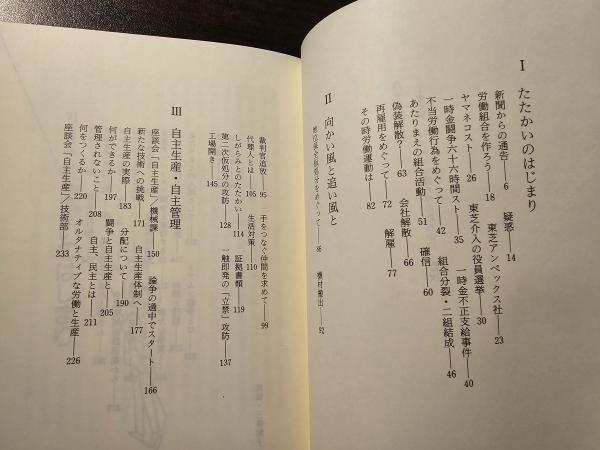 I たたかいのはじまり
新聞からの通告――6 疑惑――14
労働組合を作ろう――18 東芝アンペックス社――23
ヤマネコスト――26 東芝介入の役員選挙――30
一時金闘争六十六時間スト――35 一時金不正支給事件――40
不当労働行為をめぐって――42 組合分裂・二組結成――46
あたりまえの組合活動――51 確信――60
偽装解散?――63 会社解散――66
再雇用をめぐって――72 解雇――77
その時労働運動は――82
II 向かい風と追い風と
地位保全仮処分をめぐって――86 機材搬出――92
裁判官追放――95 手をつなぐ仲間を求めて――99
代理人とは――105 生活対策――110
しがらみとのたたかい――114 証拠書類――119
第二次仮処分の攻防――128 一触即発の「立禁」攻防――137
工場開き――145
III 自主生産・自主管理
座談会「自主生産」/機械課――150 論争の過中でスタート――166
新たな技術への挑戦――171 自主生産体制へ――177
自主生産の実際――183 分配について――190
何ができるか――197 闘争と自主生産と――205
管理されないこと――208 自主、民主とは――211
何をつくるか――220 オルタナティブな労働と生産――226
座談会「自主生産」/技術部――233